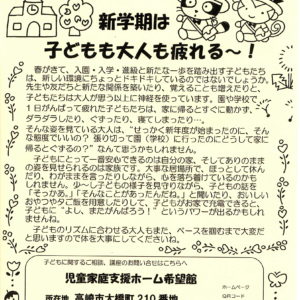 新学期は
子どもも大人も疲れる～！
春がきて、入園・入学・進級と新たな一歩を踏み出す子どもたち
は、新しい環境にちょっとドキドキしているのではないでしょうか。
先生や友だちと新たな関係を築いたり、覚えることも増えたりと、
子どもたちは大人が思う以上に神経を使っています。園や学校で
1日がんばって疲れた子どもたちは、家に帰るとすぐに動かず、
ダラダラしたり、ぐずったり、寝てしまったり…。
そんな姿を見ている大人は、「せっかく新年度が始まったのに、そん
な態度でいいの？張り切って園（学校）に行ったのにどうして家に
帰るとぐずるの？」なんて思うかもしれません。
子どもにとって一番安心できるのは自分の家、そしてありのまま
の姿を見せられるのは家族です。大事な居場所で、ほっとしてい
たり、わがままを言ったりしながら、心を落ち着けているのかも
しれません。少～し子どもの様子を見守りながら、子どもの話を
「そっかぁ。」「そんなことがあったんだね。」と聞いたり、おいしい
おやつやタご飯を用意したりして、子どもがお家で充電できると、
子どもに“よし、またがんばろう！”というパワーが出るかもし
れません。
子どものリズムに合わせる大人もまた、ペースを掴むまで大変だ
と思いますので体を大事にしてくださいね。
子どもに関するご相談、講座のお問合せはこちらへ
児童家庭支援ホーム希望館
所在地 高崎市大橋町210番地
ホームページ
QRコード